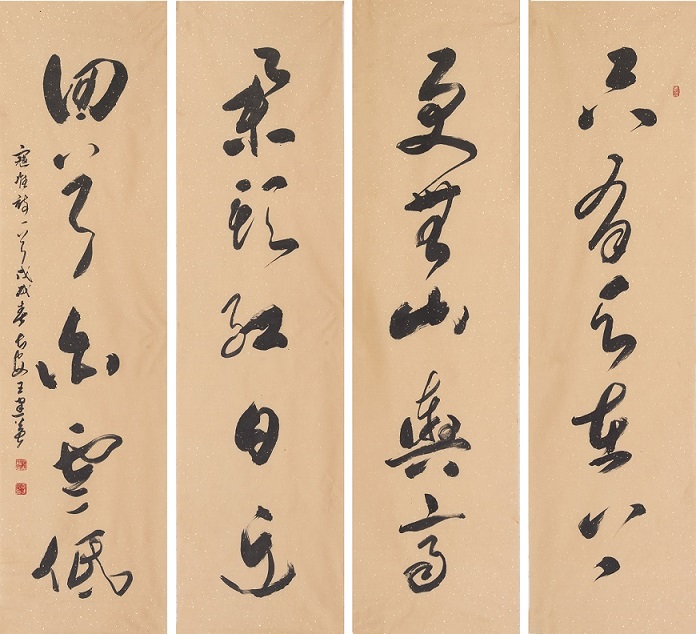 只有天在上
更無山與齊
舉頭紅日近
回首白雲低
寇准詩一首戊戌春長安王建